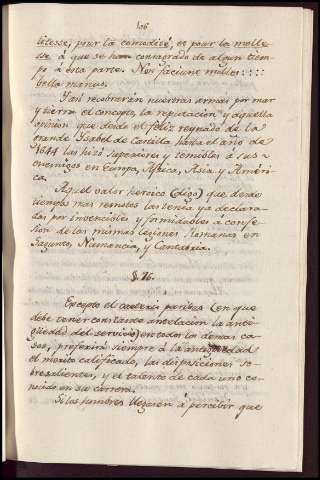 106
litesse, pour la comodité, et pour la molle-
sse á que se han consagrado de algun tiem-
po á esta parte. Nos faciunt mulier::::
bella manus.
Y asi recobrarán nuestras armas por mar
y tierra el concepto, la reputacion, y aquella
opinion que desde el feliz reynado de la
grande Ysabel de Castilla hasta el año de
1644 las hizo superiores y temibles á sus e-
nemigos en Europa, Africa, Asia y Améri-
ca.
Aquel valor heroico (digo) que desde
tiempos mas remotos las tenia ya declara-
das por invencibles y formidables á confe-
sion de las mismas legiones Romanas en
Sagunto, Numancia, y Cantabria.
§. 76.
Excepto el caeteris paribus (en que
debe tener constante antelacion la anti-
güedad del servicio) en todos los demas ca-
sos, preferirá siempre á la antigüedad
el merito calificado, las disposiciones so-
bresalientes, y el talento de cada uno co-
nocido en su carrera.
Si los hombres llegasen á percibir que